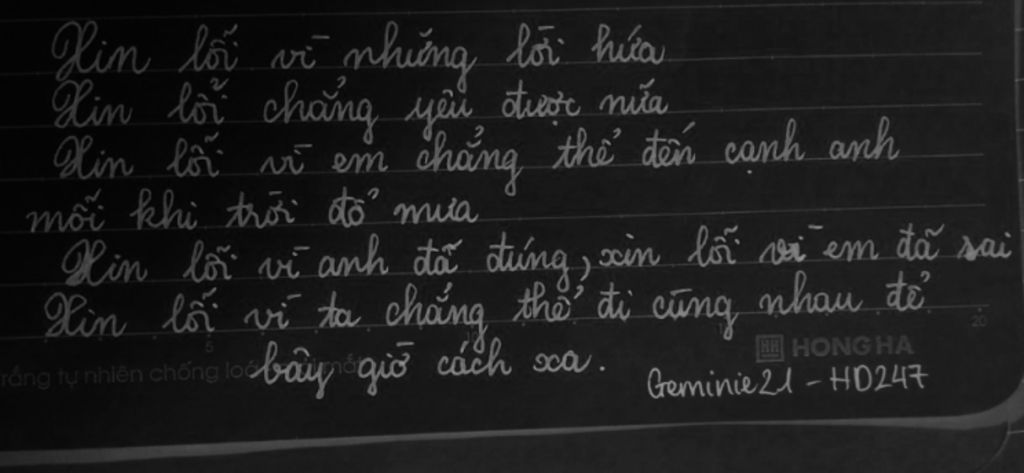 Xin lỗi vì những lời hứa
Xin lỗi chẳng yêu được nữa
Xin lỗi vì em chẳng thể đến cạnh anh
mỗi khi trời đổ mưa
Xin lỗi vì anh đã đúng, xin lỗi vì em đã sai
Xin lỗi vì ta chẳng thể đi cùng nhau để
bây giờ cách xa.
HONG HA
rắng tự nhiên chống loá mắt
5
20
Geminie21 - HD247